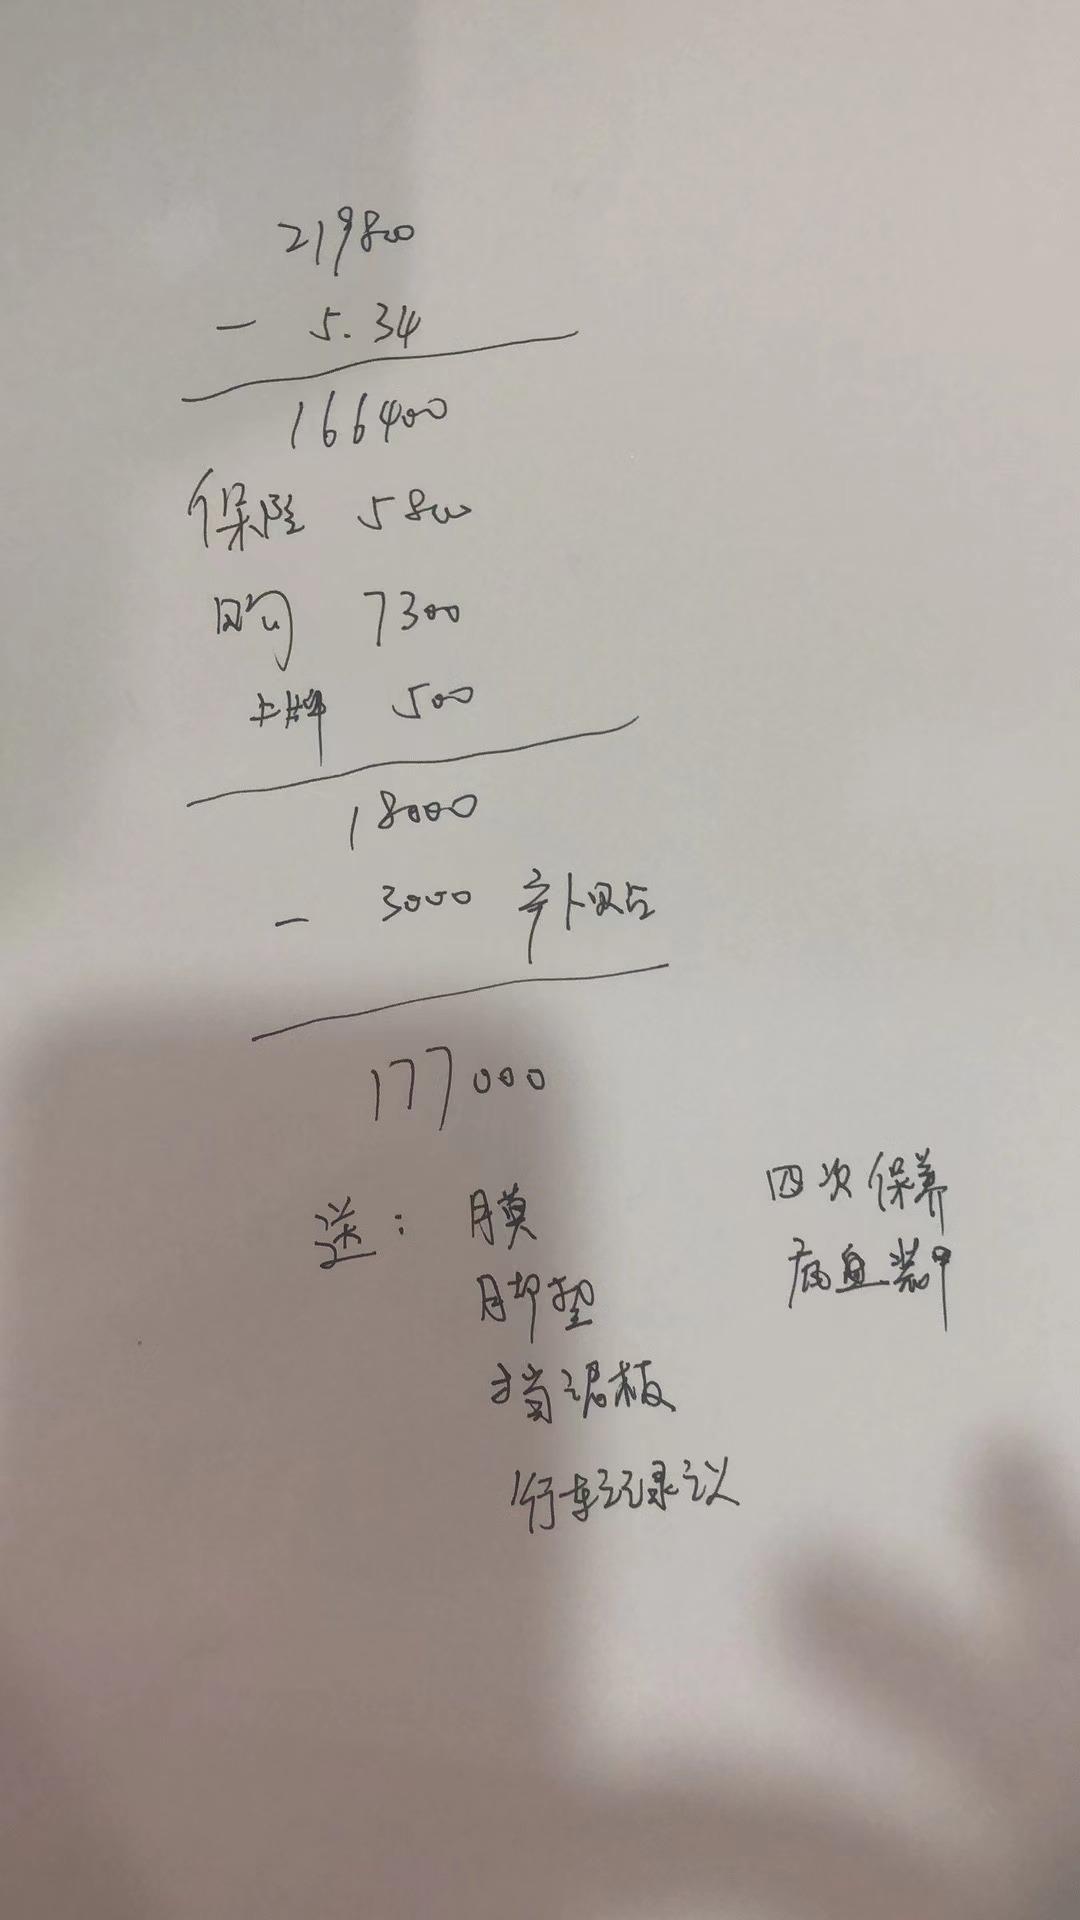 219800
- 5.34
166400
保险 5800
购 7300
上牌 500
18000
- 3000 补贴
177000
送: 膜
脚垫
挡泥板
行车记录仪
四次保养
底盘装甲